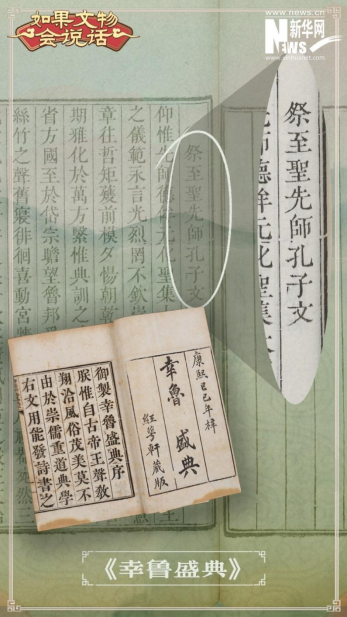 如果文物
会说话
www.news.cn
新华网
NEWS
祭至聖先師孔子文
仰惟先師德侔元化聖集大
之儀範永言光烈罔不欽崇
章往哲矩
期雅化於萬方繄惟典訓之
省方國至於岱宗瞻望魯邦
絲竹之聲舊
徘徊喜動宮
祭至聖先師孔子文
先師德侔元化聖集大
康熙己巳年梓
幸魯盛典
紅萼軒藏版
御製幸魯盛典序
朕惟自古帝王聲教
翔洽風俗茂美莫不
由於崇儒重道典學
右文用能發詩書之
《幸鲁盛典》